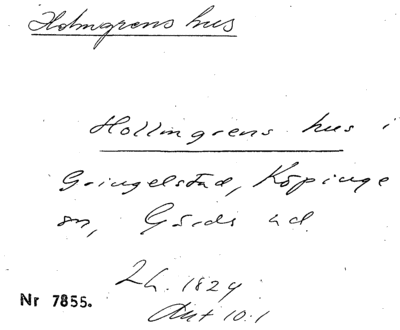 Holmgrens hus
Hollmgrens hus i
Gringelstad, Köpinge
sn, Gärds hd.
Lh. 1824
Akt 10:1
Nr 7855.